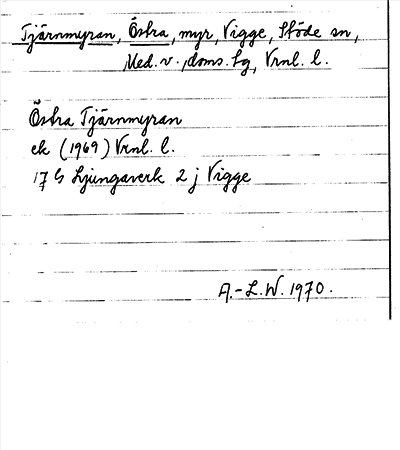 Tjärnmyran, Östra, myr, Vigge, Stöde sn,
Med. v. doms. tg, Vrnl. l.
Östra Tjärnmyran
ek (1969) Vrnl. l.
17 G Ljungaverk 2 j Vigge
A.-L.W. 1970.